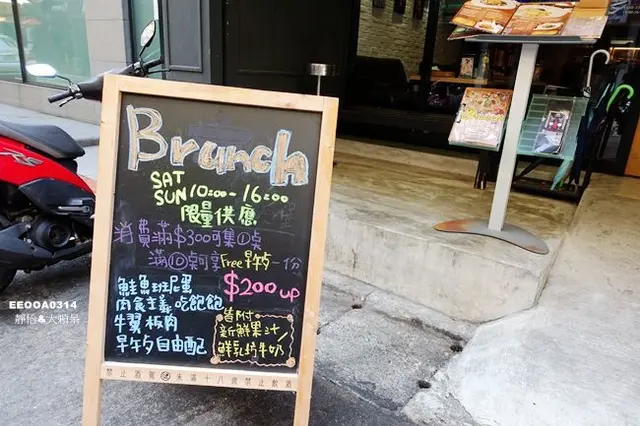 Brunch
SAT
SUN 10:00-16:00
限量供應
消費滿$300可集①点
滿⑩点可享Free早午夕一份
$200 up
鮭魚班尼蛋
肉食主義 吃飽飽
牛翼板肉
早午夕自由配
皆附
新鮮果汁/
鮮乳坊牛奶
禁止酒駕 未滿十八歲禁止飲酒
EEOOA0314
靜怡&大顆呆